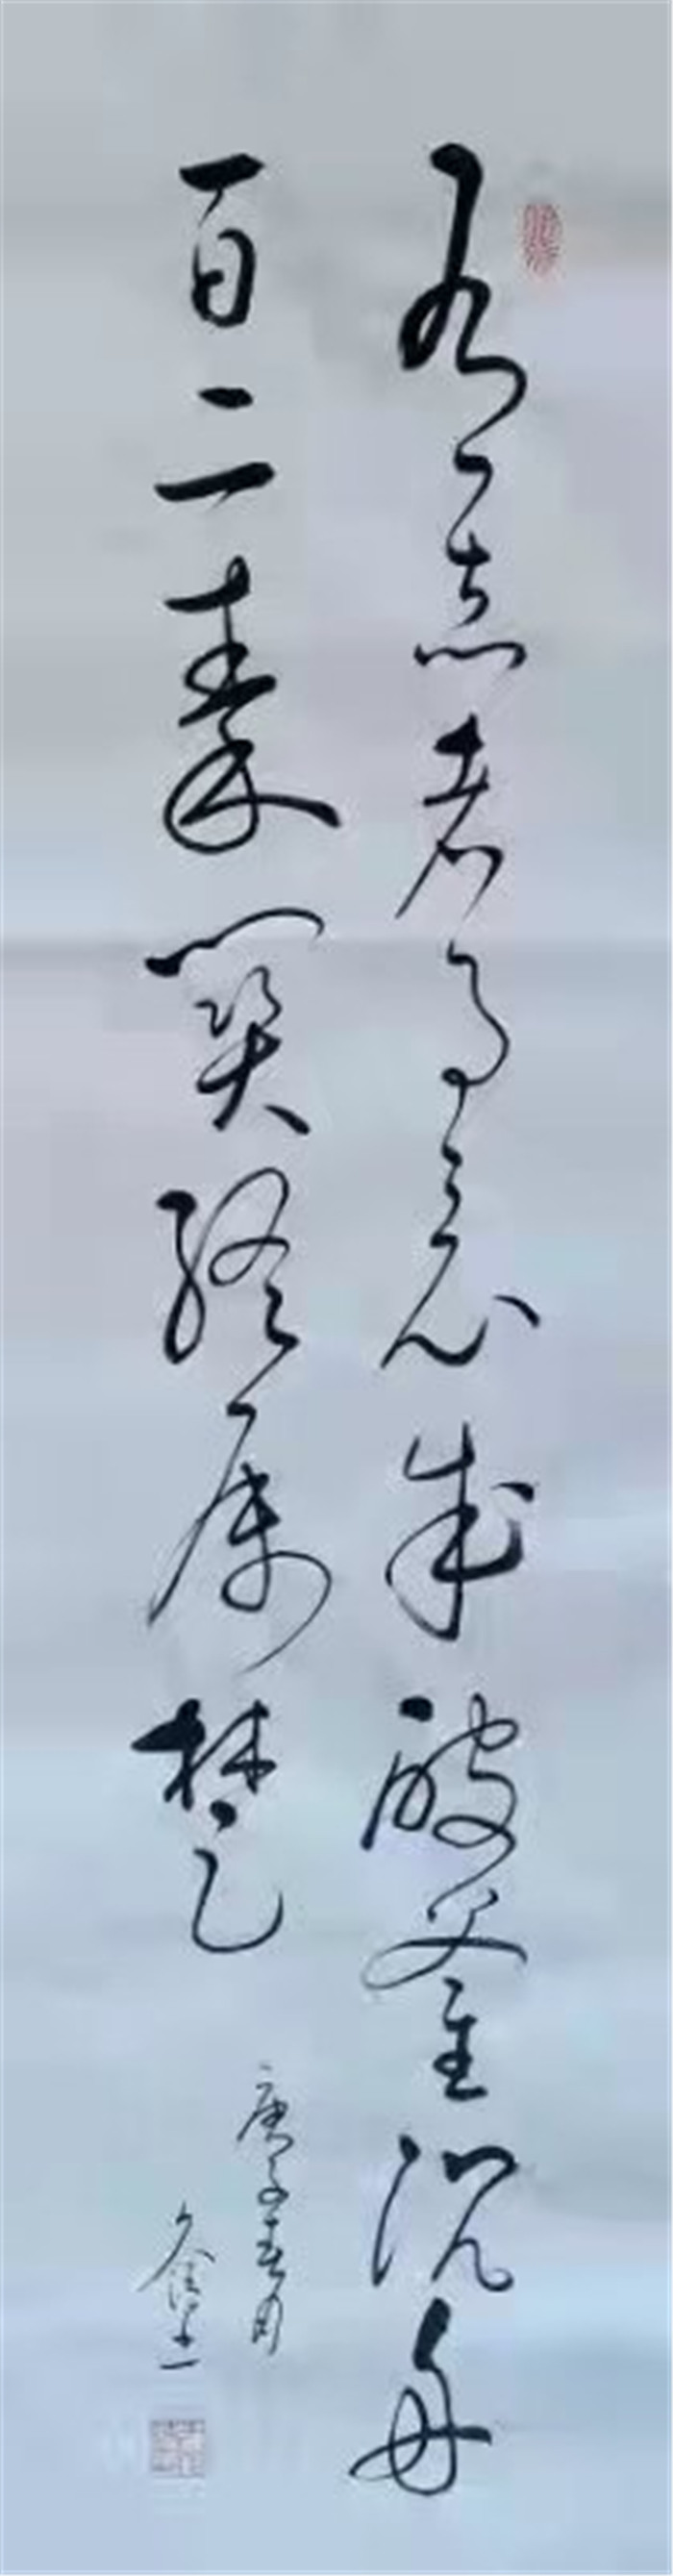 有志者事竟成破釜沉舟
百二秦关终属楚
庚子春月